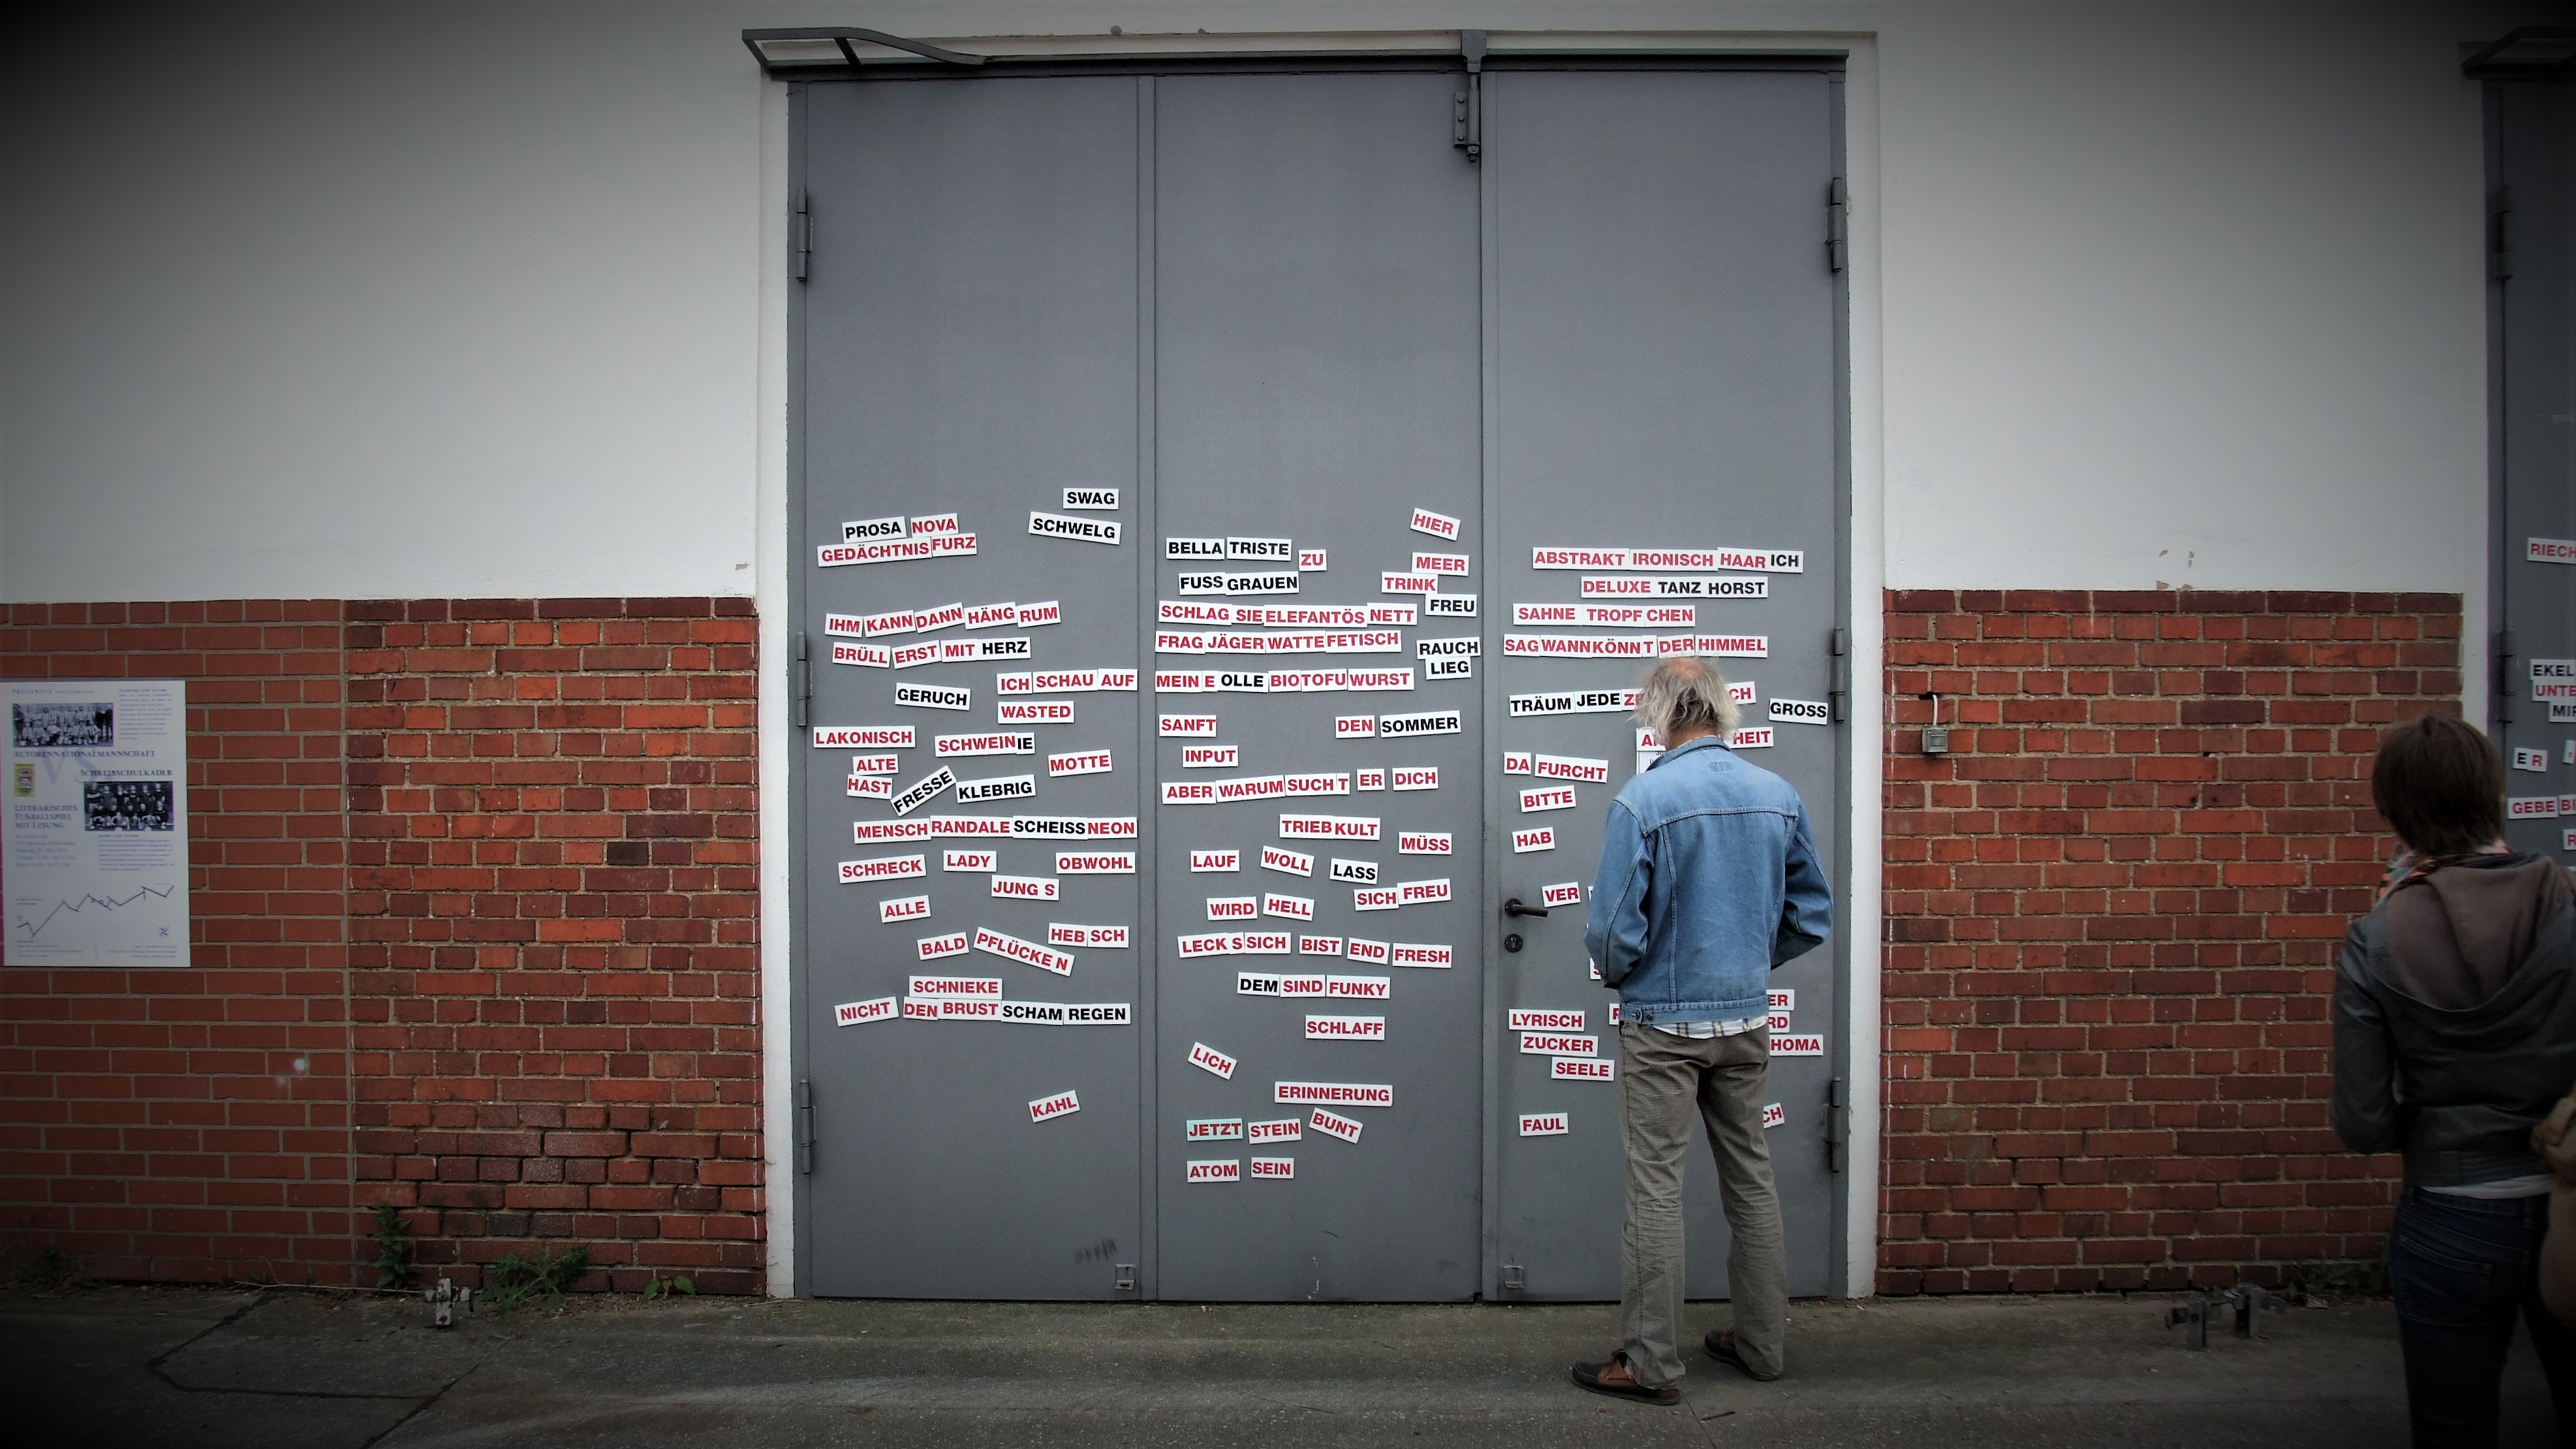 AUTORENNATIONALMANNSCHAFT
VS
SCHREIBSCHULKADER
LITERARISCHES
FUßBALLSPIEL
MIT LESUNG
SWAG
PROSA NOVA SCHWELG
GEDÄCHTNIS FURZ
IHM KANN DANN HÄNG RUM
BRÜLL ERST MIT HERZ
ICH SCHAU AUF
GERUCH
WASTED
LAKONISCH SCHWEIN IE
ALTE MOTTE
HAST FRESSE KLEBRIG
MENSCH RANDALE SCHEISS NEON
SCHRECK LADY OBWOHL
JUNG S
ALLE
BALD PFLÜCKE N HEB SCH
SCHNIEKE
NICHT DEN BRUST SCHAM REGEN
KAHL
HIER
BELLA TRISTE ZU MEER
FUSS GRAUEN TRINK
FREU
SCHLAG SIE ELEFANTÖS NETT
FRAG JÄGER WATTE FETISCH RAUCH
LIEG
MEIN E OLLE BIO TOFU WURST
SANFT DEN SOMMER
INPUT
ABER WARUM SUCH T ER DICH
TRIEB KULT
MÜSS
LAUF WOLL LASS
SICH FREU
WIRD HELL
LECK S SICH BIST END FRESH
DEM SIND FUNKY
SCHLAFF
LICH
ERINNERUNG
JETZT STEIN BUNT
ATOM SEIN
ABSTRAKT IRONISCH HAAR ICH
DELUXE TANZ HORST
SAHNE TROPF CHEN
SAG WANN KÖNN T DER HIMMEL
TRÄUM JEDE CH GROSS
HEIT
DA FURCHT
BITTE
HAB
VER
ER
LYRISCH RD
ZUCKER HOMA
SEELE
FAUL CH
RIECH
EKEL
UNTE
MIR
E R
GEBE BI